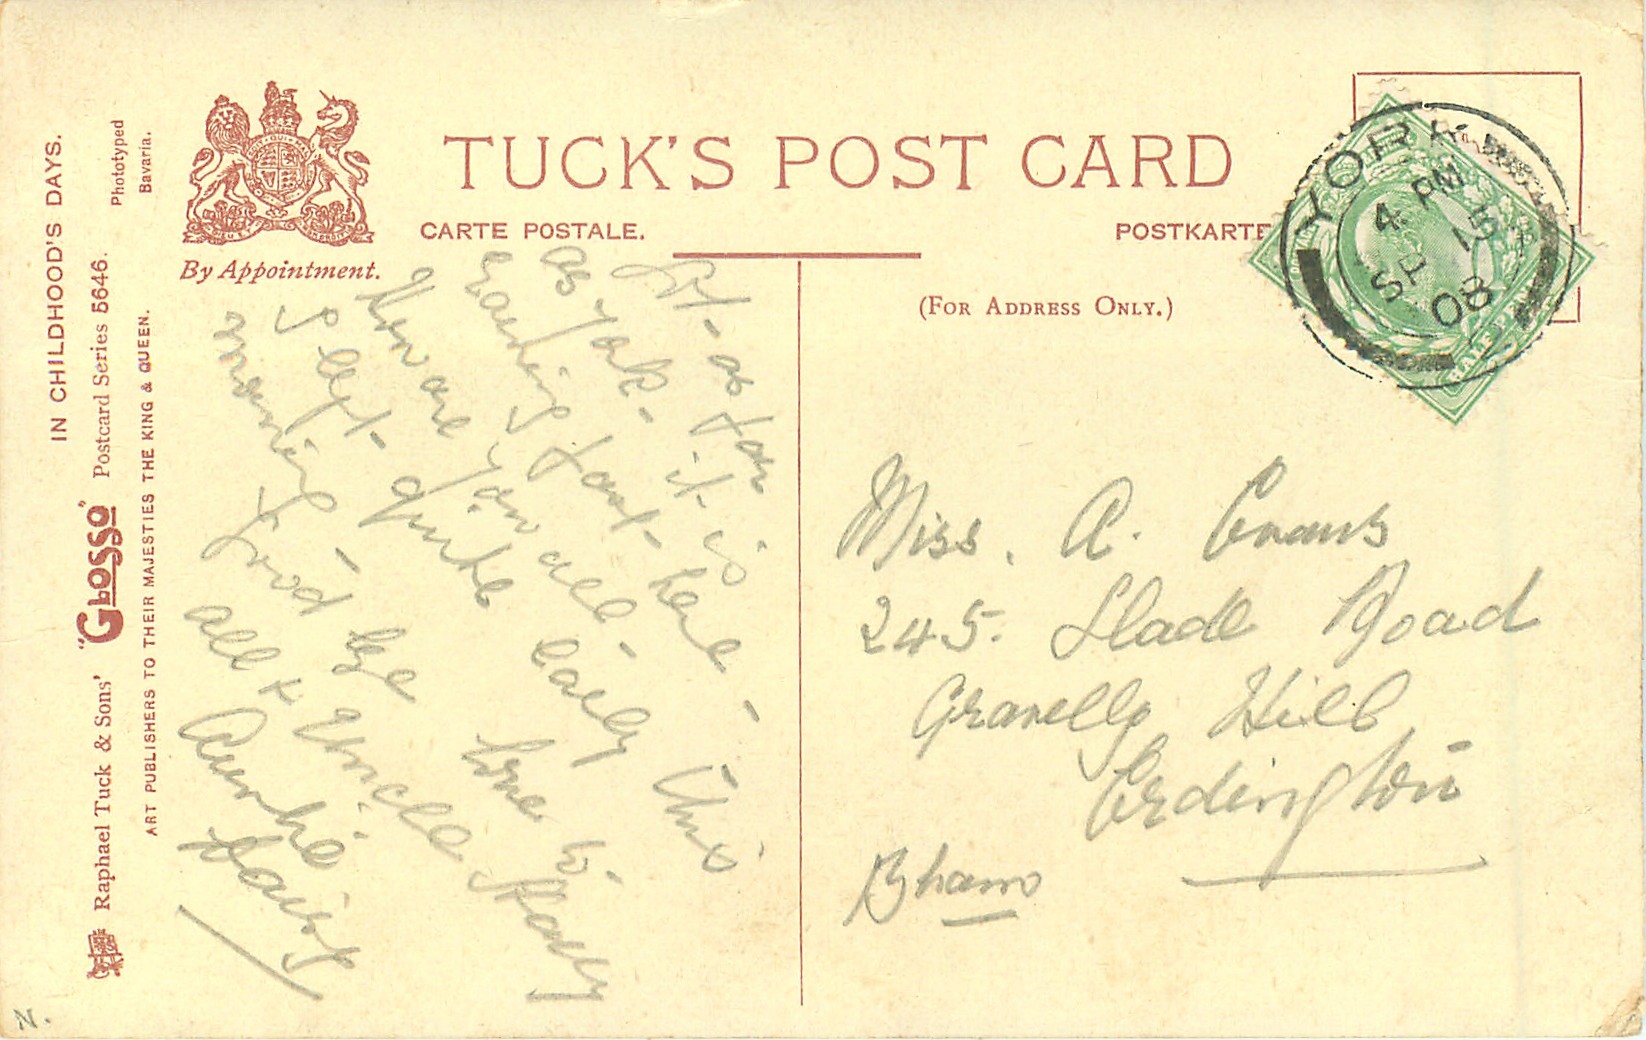 TUCK'S POST CARD
CARTE POSTALE.
POSTKARTE
By Appointment.
(FOR ADDRESS ONLY.)
IN CHILDHOOD'S DAYS.
Raphael Tuck & Sons' "GLOSSO" Postcard Series 5646.
Phototyped
Bavaria.
ART PUBLISHERS TO THEIR MAJESTIES THE KING & QUEEN.
YORK
4 PM
SP 15
08
HALF
Got as far
as York. it is
raining fast here -
How are you all.
I left quite early this
morning -
good bye love to
all & Uncle Harry
Auntie
Daisy
Miss. A. Evans
245. Slade Road
Gravelly Hill
Erdington
Bham
N.